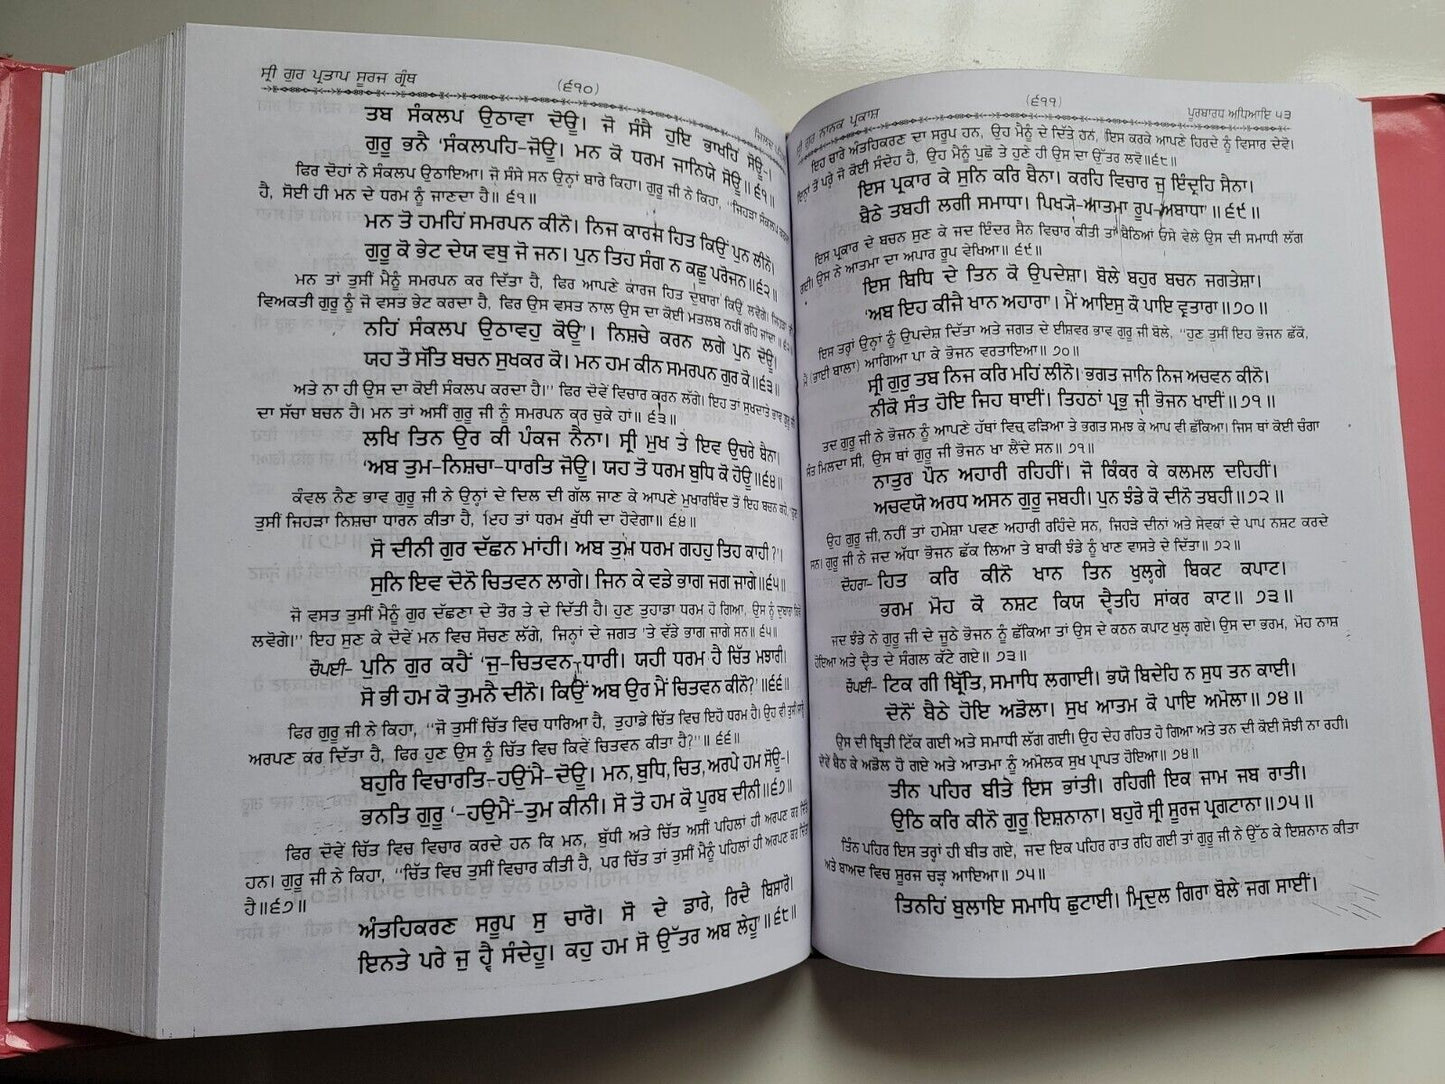 ਸ੍ਰੀ ਗੁਰ ਪ੍ਰਤਾਪ ਸੂਰਜ ਗ੍ਰੰਥ
(੬੧੦)
ਤਬ ਸੰਕਲਪ ਉਠਾਵਾ ਦੋਊ। ਜੋ ਸੰਸੈ ਹੁਇ ਭਾਖਹਿ ਸੋਊ-।
ਗੁਰੂ ਭਨੈ 'ਸੰਕਲਪਹਿ-ਜੋਊ। ਮਨ ਕੋ ਧਰਮ ਜਾਨਿਯੇ ਸੋਊ॥੬੧॥
ਫਿਰ ਦੋਹਾਂ ਨੇ ਸੰਕਲਪ ਉਠਾਇਆ। ਜੋ ਸੰਸੇ ਸਨ ਉਨ੍ਹਾਂ ਬਾਰੇ ਕਿਹਾ। ਗੁਰੂ ਜੀ ਨੇ ਕਿਹਾ, "ਜਿਹੜਾ ਸੰਕਲਪ
ਹੈ, ਸੋਈ ਹੀ ਮਨ ਦੇ ਧਰਮ ਨੂੰ ਜਾਣਦਾ ਹੈ॥੬੧॥
ਮਨ ਤੋ ਹਮਹਿਂ ਸਮਰਪਨ ਕੀਨੋ। ਨਿਜ ਕਾਰਜ ਹਿਤ ਕਿਉਂ ਪੁਨ ਲੀਨੋ।
ਗੁਰੂ ਕੋ ਭੇਟ ਦੇਯ ਵਥੁ ਜੋ ਜਨ। ਪੁਨ ਤਿਹ ਸੰਗ ਨ ਕਛੂ ਪਰੋਜਨ॥੬੨॥
ਮਨ ਤਾਂ ਤੁਸੀਂ ਮੈਨੂੰ ਸਮਰਪਨ ਕਰ ਦਿੱਤਾ ਹੈ, ਫਿਰ ਆਪਣੇ ਕਾਰਜ ਹਿਤ ਦੁਬਾਰਾ ਕਿਉਂ ਲਵੋਗੇ। ਜਿਹੜਾ ਵੀ
ਵਿਅਕਤੀ ਗੁਰੂ ਨੂੰ ਜੋ ਵਸਤ ਭੇਟ ਕਰਦਾ ਹੈ, ਫਿਰ ਉਸ ਵਸਤ ਨਾਲ ਉਸ ਦਾ ਕੋਈ ਮਤਲਬ ਨਹੀਂ ਰਹਿ ਜਾਂਦਾ॥੬੨॥
ਨਹਿਂ ਸੰਕਲਪ ਉਠਾਵਹੁ ਕੋਊ'। ਨਿਸ਼ਚੇ ਕਰਨ ਲਗੇ ਪੁਨ ਦੋਊ।
ਯਹ ਤੋ ਸੱਤਿ ਬਚਨ ਸੁਖਕਰ ਕੋ। ਮਨ ਹਮ ਕੀਨ ਸਮਰਪਨ ਗੁਰ ਕੋ॥੬੩॥
ਅਤੇ ਨਾ ਹੀ ਉਸ ਦਾ ਕੋਈ ਸੰਕਲਪ ਕਰਦਾ ਹੈ।" ਫਿਰ ਦੋਵੇਂ ਵਿਚਾਰ ਕਰਨ ਲੱਗੇ। ਇਹ ਤਾਂ ਸੁਖਦਾਤੇ ਭਾਵ ਗੁਰੂ ਜੀ
ਦਾ ਸੱਚਾ ਬਚਨ ਹੈ। ਮਨ ਤਾਂ ਅਸੀਂ ਗੁਰੂ ਜੀ ਨੂੰ ਸਮਰਪਨ ਕਰ ਚੁਕੇ ਹਾਂ॥੬੩॥
ਲਖਿ ਤਿਨ ਉਰ ਕੀ ਪੰਕਜ ਨੈਨਾ। ਸ੍ਰੀ ਮੁਖ ਤੇ ਇਵ ਉਚਰੇ ਬੈਨਾ।
'ਅਬ ਤੁਮ-ਨਿਸ਼ਚਾ-ਧਾਰਤਿ ਜੋਊ। ਯਹ ਤੋ ਧਰਮ ਬੁਧਿ ਕੋ ਹੋਊ॥੬੪॥
ਕੰਵਲ ਨੈਣ ਭਾਵ ਗੁਰੂ ਜੀ ਨੇ ਉਨ੍ਹਾਂ ਦੇ ਦਿਲ ਦੀ ਗੱਲ ਜਾਣ ਕੇ ਆਪਣੇ ਮੁਖਾਰਬਿੰਦ ਤੋਂ ਇਹ ਬਚਨ ਕਹੇ,
ਤੁਸੀਂ ਜਿਹੜਾ ਨਿਸ਼ਚਾ ਧਾਰਨ ਕੀਤਾ ਹੈ, ਇਹ ਤਾਂ ਧਰਮ ਬੁੱਧੀ ਦਾ ਹੋਵੇਗਾ॥੬੪॥
ਸੋ ਦੀਨੀ ਗੁਰ ਦੱਛਨ ਮਾਂਹੀ। ਅਬ ਤੁਮ ਧਰਮ ਗਹਹੁ ਤਿਹ ਕਾਹੀ?'।
ਸੁਨਿ ਇਵ ਦੋਨੋ ਚਿਤਵਨ ਲਾਗੇ। ਜਿਨ ਕੇ ਵਡੇ ਭਾਗ ਜਗ ਜਾਗੇ॥੬੫॥
ਜੋ ਵਸਤ ਤੁਸੀਂ ਮੈਨੂੰ ਗੁਰ ਦੱਛਣਾ ਦੇ ਤੌਰ ਤੇ ਦੇ ਦਿੱਤੀ ਹੈ। ਹੁਣ ਤੁਹਾਡਾ ਧਰਮ ਹੋ ਗਿਆ, ਉਸ ਨੂੰ ਦੁਬਾਰਾ ਕਿਵੇਂ
ਲਵੋਗੇ।" ਇਹ ਸੁਣ ਕੇ ਦੋਵੇਂ ਮਨ ਵਿਚ ਸੋਚਣ ਲੱਗੇ, ਜਿਨ੍ਹਾਂ ਦੇ ਜਗਤ 'ਤੇ ਵੱਡੇ ਭਾਗ ਜਾਗੇ ਸਨ॥੬੫॥
ਚੌਪਈ- ਪੁਨਿ ਗੁਰ ਕਹੈਂ 'ਜੁ-ਚਿਤਵਨ-ਧਾਰੀ। ਯਹੀ ਧਰਮ ਹੈ ਚਿੱਤ ਮਝਾਰੀ।
ਸੋ ਭੀ ਹਮ ਕੋ ਤੁਮਨੈ ਦੀਨੋ। ਕਿਉਂ ਅਬ ਉਰ ਮੈਂ ਚਿਤਵਨ ਕੀਨੋ?'॥੬੬॥
ਫਿਰ ਗੁਰੂ ਜੀ ਨੇ ਕਿਹਾ, "ਜੋ ਤੁਸੀਂ ਚਿੱਤ ਵਿਚ ਧਾਰਿਆ ਹੈ, ਤੁਹਾਡੇ ਚਿੱਤ ਵਿਚ ਇਹੋ ਧਰਮ ਹੈ। ਉਹ ਵੀ ਤੁਸੀਂ ਸਾਨੂੰ
ਅਰਪਣ ਕਰ ਦਿੱਤਾ ਹੈ, ਫਿਰ ਹੁਣ ਉਸ ਨੂੰ ਚਿੱਤ ਵਿਚ ਕਿਵੇਂ ਚਿਤਵਨ ਕੀਤਾ ਹੈ?"॥੬੬॥
ਬਹੁਰਿ ਵਿਚਾਰਤਿ-ਹਉਂਮੈ-ਦੋਊ। ਮਨ, ਬੁਧਿ, ਚਿਤ, ਅਰਪੇ ਹਮ ਸੋਊ-।
ਭਨਤਿ ਗੁਰੂ '-ਹਉਮੈਂ-ਤੁਮ ਕੀਨੀ। ਸੋ ਤੋ ਹਮ ਕੋ ਪੂਰਬ ਦੀਨੀ॥੬੭॥
ਫਿਰ ਦੋਵੇਂ ਚਿੱਤ ਵਿਚ ਵਿਚਾਰ ਕਰਦੇ ਹਨ ਕਿ ਮਨ, ਬੁੱਧੀ ਅਤੇ ਚਿੱਤ ਅਸੀਂ ਪਹਿਲਾਂ ਹੀ ਅਰਪਣ ਕਰ ਦਿੱਤੇ
ਹਨ। ਗੁਰੂ ਜੀ ਨੇ ਕਿਹਾ, "ਚਿੱਤ ਵਿਚ ਤੁਸੀਂ ਵਿਚਾਰ ਕੀਤੀ ਹੈ, ਪਰ ਚਿੱਤ ਤਾਂ ਤੁਸੀਂ ਮੈਨੂੰ ਪਹਿਲਾਂ ਹੀ ਅਰਪਣ ਕਰ ਦਿੱਤਾ
ਹੈ॥੬੭॥
ਅੰਤਹਿਕਰਣ ਸਰੂਪ ਸੁ ਚਾਰੋ। ਸੋ ਦੇ ਡਾਰੇ, ਰਿਦੈ ਬਿਸਾਰੋ।
ਇਨਤੇ ਪਰੇ ਜੁ ਹ੍ਵੈ ਸੰਦੇਹੂ। ਕਹੁ ਹਮ ਸੋਂ ਉੱਤਰ ਅਬ ਲੇਹੂ'॥੬੮॥
ਸ੍ਰੀ ਗੁਰ ਨਾਨਕ ਪ੍ਰਕਾਸ਼
(੬੧੧)
ਪੂਰਬਾਰਧ ਅਧਿਆਇ ੫੩
ਇਹ ਚਾਰੇ ਅੰਤਹਿਕਰਣ ਦਾ ਸਰੂਪ ਹਨ, ਉਹ ਮੈਨੂੰ ਦੇ ਦਿੱਤੇ ਹਨ, ਇਸ ਕਰਕੇ ਆਪਣੇ ਹਿਰਦੇ ਨੂੰ ਵਿਸਾਰ ਦੇਵੋ।
ਇਨ੍ਹਾਂ ਤੋਂ ਪਰ੍ਹੇ ਜੋ ਕੋਈ ਸੰਦੇਹ ਹੈ, ਉਹ ਮੈਨੂੰ ਪੁਛੋ ਤੇ ਹੁਣੇ ਹੀ ਉਸ ਦਾ ਉੱਤਰ ਲਵੋ॥੬੮॥
ਇਸ ਪ੍ਰਕਾਰ ਕੇ ਸੁਨਿ ਕਰਿ ਬੈਨਾ। ਕਰਹਿ ਵਿਚਾਰ ਜੁ ਇੰਦ੍ਰਹਿ ਸੈਨਾ।
ਬੈਠੇ ਤਬਹੀ ਲਗੀ ਸਮਾਧਾ। ਪਿਖ੍ਯੋ-ਆਤਮਾ ਰੂਪ-ਅਬਾਧਾ'॥੬੯॥
ਇਸ ਪ੍ਰਕਾਰ ਦੇ ਬਚਨ ਸੁਣ ਕੇ ਜਦ ਇੰਦਰ ਸੈਨ ਵਿਚਾਰ ਕੀਤੀ ਤਾਂ ਬੈਠਿਆਂ ਓਸੇ ਵੇਲੇ ਉਸ ਦੀ ਸਮਾਧੀ ਲੱਗ
ਗਈ। ਉਸ ਨੇ ਆਤਮਾ ਦਾ ਅਪਾਰ ਰੂਪ ਵੇਖਿਆ॥੬੯॥
ਇਸ ਬਿਧਿ ਦੇ ਤਿਨ ਕੋ ਉਪਦੇਸ਼ਾ। ਬੋਲੇ ਬਹੁਰ ਬਚਨ ਜਗਤੇਸ਼ਾ।
'ਅਬ ਇਹ ਕੀਜੈ ਖਾਨ ਅਹਾਰਾ'। ਮੈਂ ਆਇਸੁ ਕੋ ਪਾਇ ਵ੍ਰਤਾਰਾ॥੭੦॥
ਇਸ ਤਰ੍ਹਾਂ ਉਨ੍ਹਾਂ ਨੂੰ ਉਪਦੇਸ਼ ਦਿੱਤਾ ਅਤੇ ਜਗਤ ਦੇ ਈਸ਼ਵਰ ਭਾਵ ਗੁਰੂ ਜੀ ਬੋਲੇ, "ਹੁਣ ਤੁਸੀਂ ਇਹ ਭੋਜਨ ਛੱਕੋ,
ਮੈਂ (ਭਾਈ ਬਾਲਾ) ਆਗਿਆ ਪਾ ਕੇ ਭੋਜਨ ਵਰਤਾਇਆ॥੭੦॥
ਸ੍ਰੀ ਗੁਰੂ ਤਬ ਨਿਜ ਕਰਿ ਮਹਿਂ ਲੀਨੋ। ਭਗਤ ਜਾਨਿ ਨਿਜ ਅਚਵਨ ਕੀਨੋ।
ਨੀਕੋ ਸੰਤ ਹੋਇ ਜਿਹ ਥਾਈਂ। ਤਿਹਠਾਂ ਪ੍ਰਭੁ ਜੀ ਭੋਜਨ ਖਾਈਂ॥੭੧॥
ਤਦ ਗੁਰੂ ਜੀ ਨੇ ਭੋਜਨ ਨੂੰ ਆਪਣੇ ਹੱਥਾਂ ਵਿਚ ਫੜਿਆ ਤੇ ਭਗਤ ਸਮਝ ਕੇ ਆਪ ਵੀ ਛੱਕਿਆ। ਜਿਸ ਥਾਂ ਕੋਈ ਚੰਗਾ
ਸੰਤ ਮਿਲਦਾ ਸੀ, ਉਸ ਥਾਂ ਗੁਰੂ ਜੀ ਭੋਜਨ ਖਾ ਲੈਂਦੇ ਸਨ॥੭੧॥
ਨਾਤੁਰ ਪੌਨ ਅਹਾਰੀ ਰਹਿਹੀਂ। ਜੋ ਕਿੰਕਰ ਕੇ ਕਲਮਲ ਦਹਿਹੀਂ।
ਅਚਵਯੋ ਅਰਧ ਅਸਨ ਗੁਰੂ ਜਬਹੀ। ਪੁਨ ਝੰਡੇ ਕੋ ਦੀਨੋ ਤਬਹੀ॥੭੨॥
ਉਹ ਗੁਰੂ ਜੀ, ਨਹੀਂ ਤਾਂ ਹਮੇਸ਼ਾ ਪਵਣ ਅਹਾਰੀ ਰਹਿੰਦੇ ਸਨ, ਜਿਹੜੇ ਦੀਨਾਂ ਅਤੇ ਸੇਵਕਾਂ ਦੇ ਪਾਪ ਨਸ਼ਟ ਕਰਦੇ
ਸਨ। ਗੁਰੂ ਜੀ ਨੇ ਜਦ ਅੱਧਾ ਭੋਜਨ ਛੱਕ ਲਿਆ ਤੇ ਬਾਕੀ ਝੰਡੇ ਨੂੰ ਖਾਣ ਵਾਸਤੇ ਦੇ ਦਿੱਤਾ॥੭੨॥
ਦੋਹਰਾ- ਹਿਤ ਕਰਿ ਕੀਨੋ ਖਾਨ ਤਿਨ ਖੁਲ੍ਹਗੇ ਬਿਕਟ ਕਪਾਟ।
ਭਰਮ ਮੋਹ ਕੋ ਨਸ਼ਟ ਕਿਯ ਦ੍ਵੈਤਹਿ ਸਾਂਕਰ ਕਾਟ॥੭੩॥
ਜਦ ਝੰਡੇ ਨੇ ਗੁਰੂ ਜੀ ਦੇ ਜੂਠੇ ਭੋਜਨ ਨੂੰ ਛੱਕਿਆ ਤਾਂ ਉਸ ਦੇ ਕਠਨ ਕਪਾਟ ਖੁਲ੍ਹ ਗਏ। ਉਸ ਦਾ ਭਰਮ, ਮੋਹ ਨਾਸ਼
ਹੋਇਆ ਅਤੇ ਦ੍ਵੈਤ ਦੇ ਸੰਗਲ ਕੱਟੇ ਗਏ॥੭੩॥
ਚੌਪਈ- ਟਿਕ ਗੀ ਬ੍ਰਿੱਤਿ, ਸਮਾਧਿ ਲਗਾਈ। ਭਯੋ ਬਿਦੇਹਿ ਨ ਸੁਧ ਤਨ ਕਾਈ।
ਦੋਨੋਂ ਬੈਠੇ ਹੋਇ ਅਡੋਲਾ। ਸੁਖ ਆਤਮ ਕੋ ਪਾਇ ਅਮੋਲਾ॥੭੪॥
ਉਸ ਦੀ ਬ੍ਰਿਤੀ ਟਿੱਕ ਗਈ ਅਤੇ ਸਮਾਧੀ ਲੱਗ ਗਈ। ਉਹ ਦੇਹ ਰਹਿਤ ਹੋ ਗਿਆ ਅਤੇ ਤਨ ਦੀ ਕੋਈ ਸੋਝੀ ਨਾ ਰਹੀ।
ਦੋਵੇਂ ਬੈਠ ਕੇ ਅਡੋਲ ਹੋ ਗਏ ਅਤੇ ਆਤਮਾ ਨੂੰ ਅਮੋਲਕ ਸੁਖ ਪ੍ਰਾਪਤ ਹੋਇਆ॥੭੪॥
ਤੀਨ ਪਹਿਰ ਬੀਤੇ ਇਸ ਭਾਂਤੀ। ਰਹਿਗੀ ਇਕ ਜਾਮ ਜਬ ਰਾਤੀ।
ਉਠਿ ਕਰਿ ਕੀਨੋ ਗੁਰੂ ਇਸ਼ਨਾਨਾ। ਬਹੁਰੋ ਸ੍ਰੀ ਸੂਰਜ ਪ੍ਰਗਟਾਨਾ॥੭੫॥
ਤਿੰਨ ਪਹਿਰ ਇਸ ਤਰ੍ਹਾਂ ਹੀ ਬੀਤ ਗਏ, ਜਦ ਇਕ ਪਹਿਰ ਰਾਤ ਰਹਿ ਗਈ ਤਾਂ ਗੁਰੂ ਜੀ ਨੇ ਉੱਠ ਕੇ ਇਸ਼ਨਾਨ ਕੀਤਾ
ਅਤੇ ਬਾਅਦ ਵਿਚ ਸੂਰਜ ਚੜ੍ਹ ਆਇਆ॥੭੫॥
ਤਿਨਹਿਂ ਬੁਲਾਇ ਸਮਾਧਿ ਛੁਟਾਈ। ਮ੍ਰਿਦੁਲ ਗਿਰਾ ਬੋਲੇ ਜਗ ਸਾਈਂ।